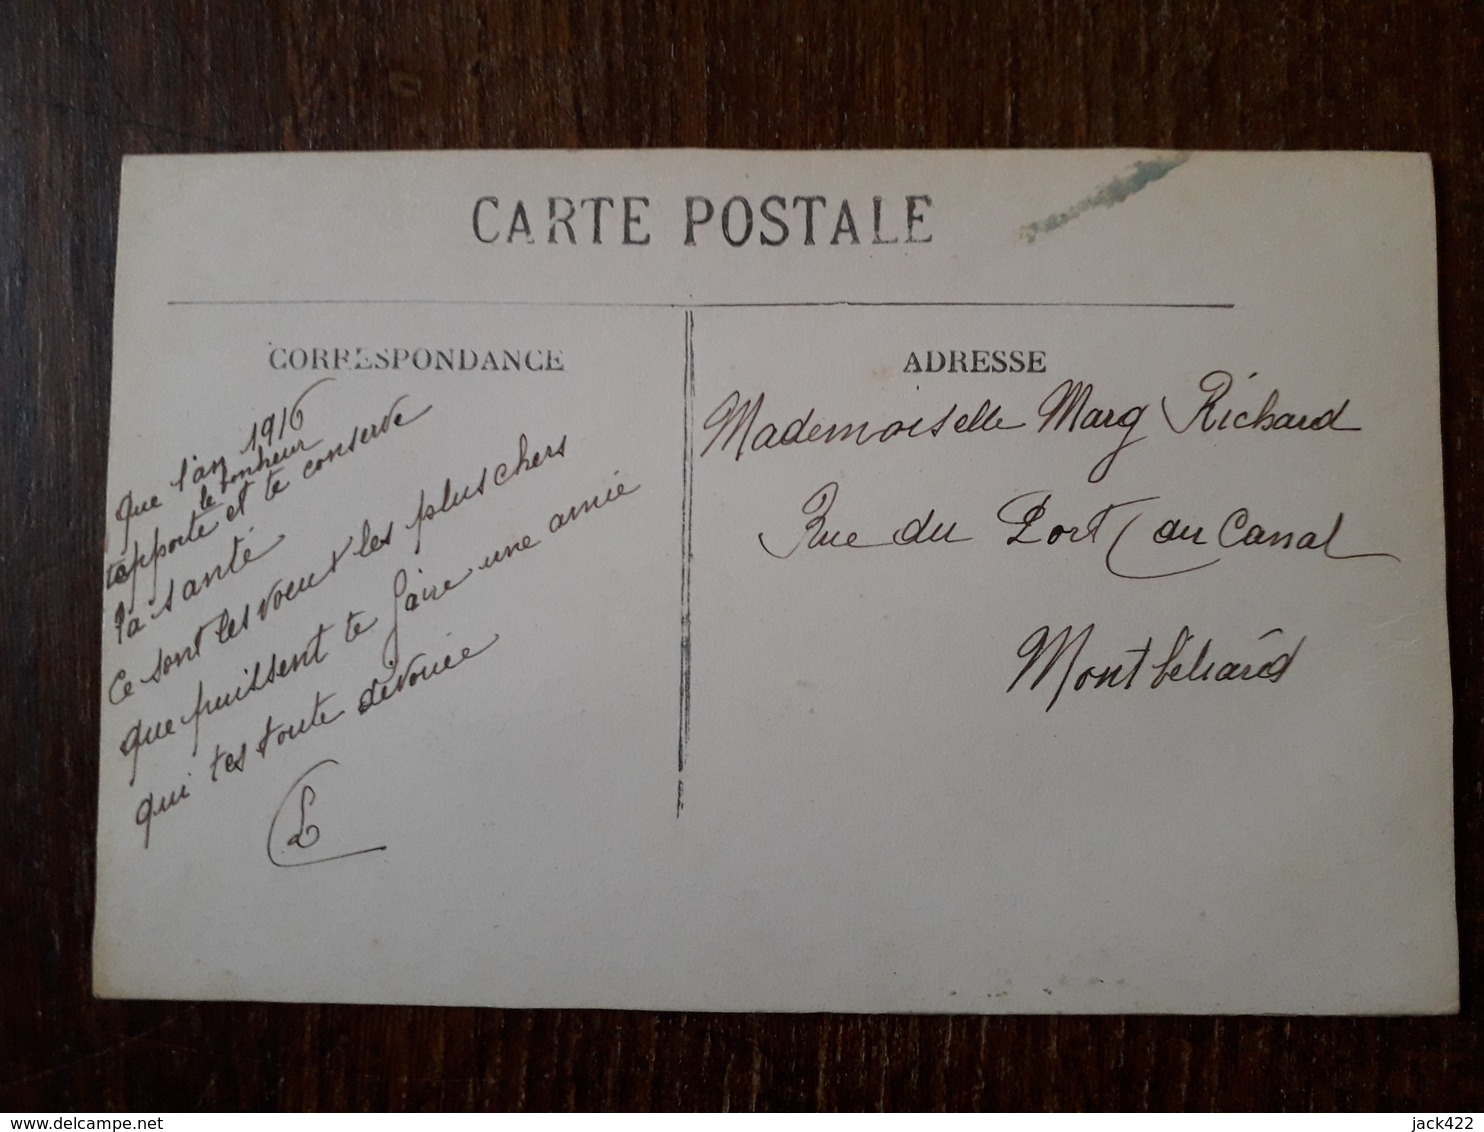 CARTE POSTALE
CORRESPONDANCE
Que l'an 1916
le bonheur
t'apporte et te conserve
la santé
Ce sont les voeux les plus chers
que puissent te faire une amie
qui t'es toute dévouée
L
ADRESSE
Mademoiselle Marg Richard
Rue du Port (au Canal
Montbéliard
delcampe.net
jack422